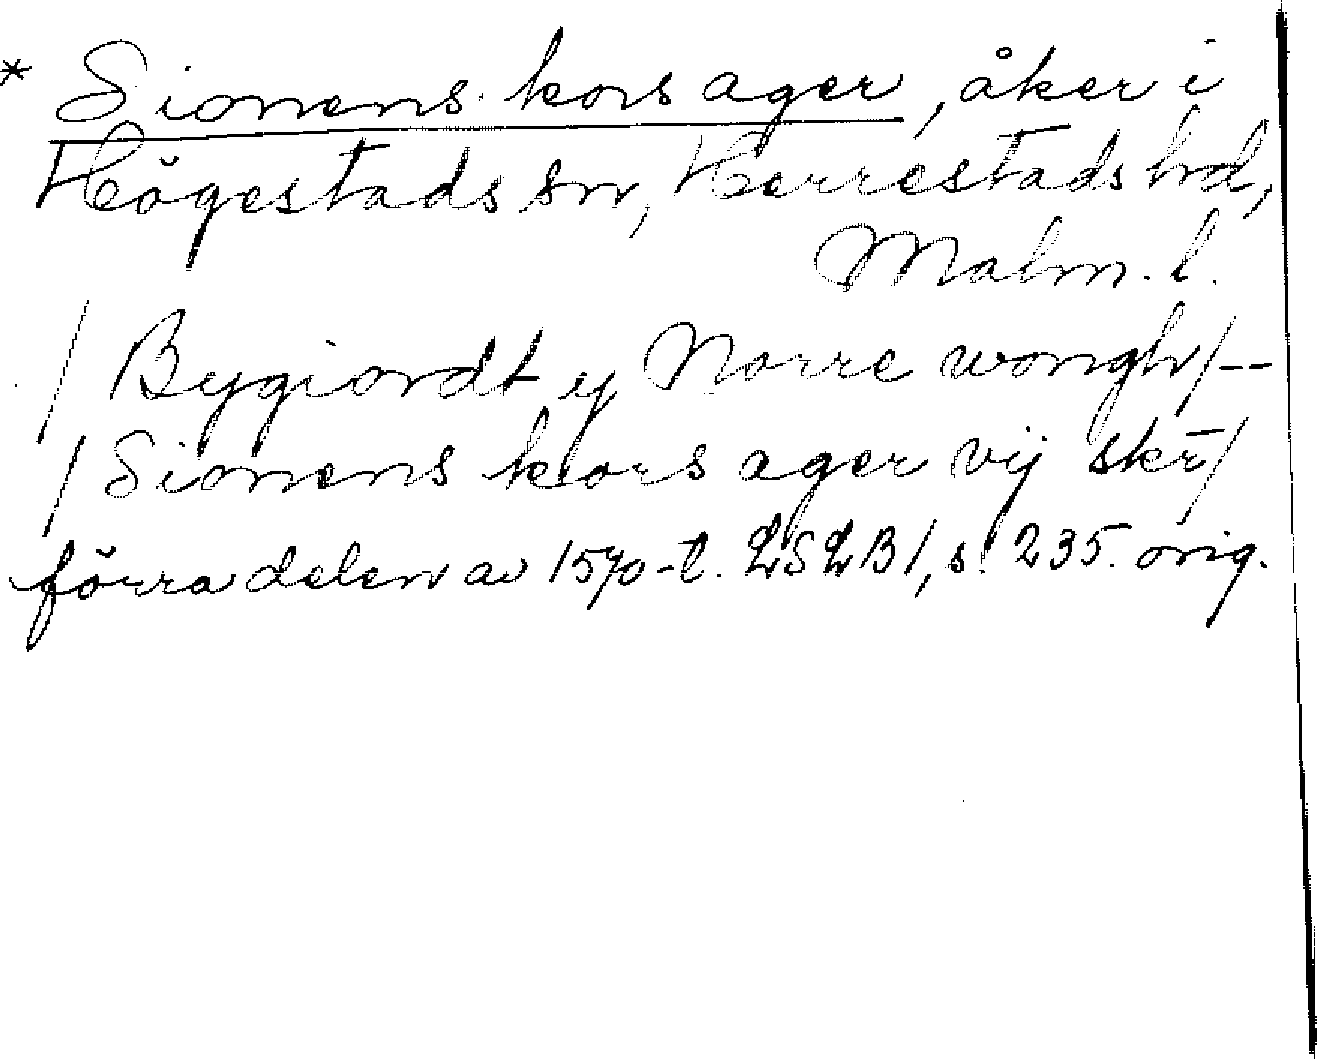 * Sionens kors ager, åker i
Högestads sn, Herrestads hd,
Malm. l.
/ Bygiordt y Norre wongh / --
/ Sionens kors ager vij skr̄ /
förra delen av 1570-t. LSLB 1, s. 235. orig.